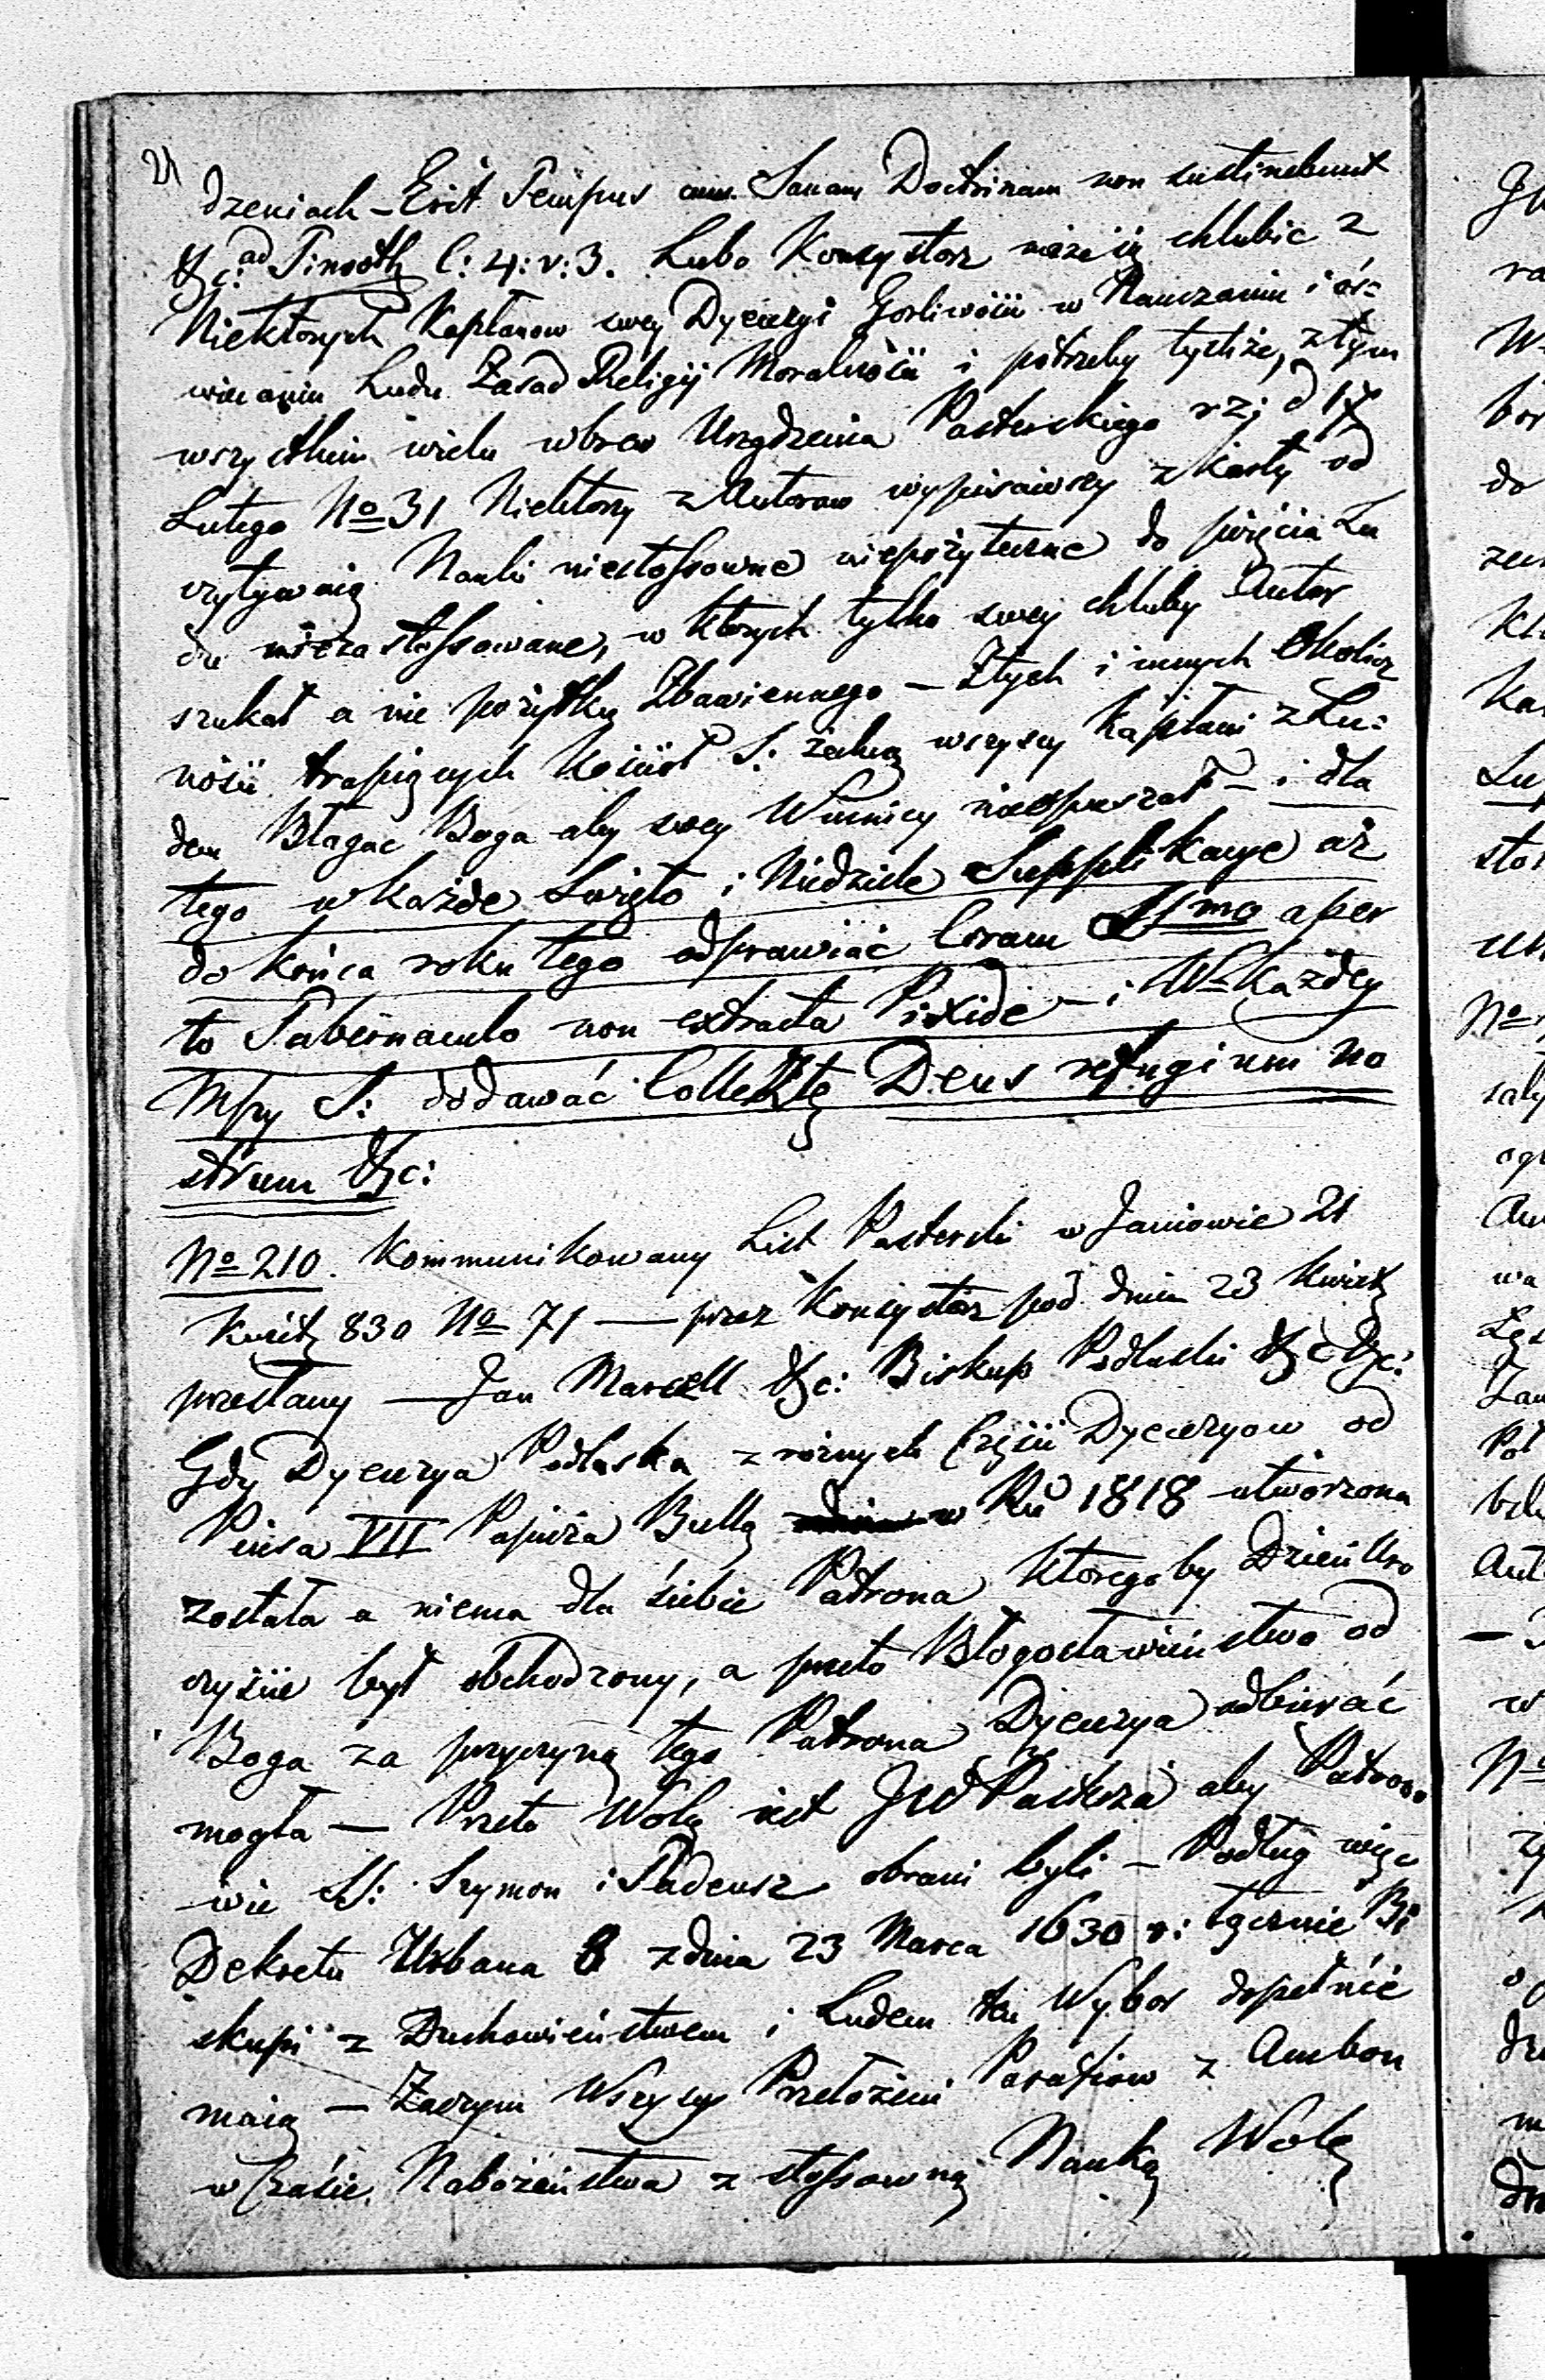 21
dzeniach – Erit Tempus cum Sanam Doctrinam non sustinebunt
&c: ad Timoth C: 4: v: 3. Lubo Konsystorz może się chlubic z
Niektorych Kapłanow swey Dyecezyi Gorliwości w Nauczaniu i óś=
wiecaniu Ludu Zasad Religij Moralności i potrzeby tychże, z tym
wszystkim wielu wbrew Urządzenia Pasterskiego rzi d 17
Lutego No 31 Niektorzy z Autorow wypisawszy z Karty od
czytywaią Nauki niestossowne niepożyteczne do pojęcia Lu
du niezastossowane, w ktorych tylko swey chluby Autor
szukał a nie pożytku Zbawiennego – Z tych i innych Okolicz
ności trapiących Kościoł S: zechcą wszyscy Kapłani z Lu=
dem Błagac Boga aby swey Winnicy nieopuszczał – i dla
tego w każde Swięto i Niedziele Supplikacye aż
do końca roku tego odprawiać Coram SSmo aper
to Tabernaculo non extracta Pixide – i W każdey
Mszy S: dodawać Collektę Deus refugium no
strum &c:
No 210. Kommunikowany List Pasterski w Janowie 21
Kwiet. 830 No 71 — przez Konsystorz pod dniem 23 Kwiet.
przesłany — Jan Marcell &c: Biskup Podlaski &c &c:
Gdy Dyecezya Podlaska z rożnych Części Dyecezyow od
Piusa VII Papieża Bullą w Ru 1818 utworzona
została a niema dla siebie Patrona ktoregoby Dzień Uro
czyście był obchodzony, a przeto Błogosławieństwo od
Boga za przyczyną tego Patrona Dyecezya odbierać
mogła — Przeto Wolą iest JW Pasterza aby Patrono
wie SS: Szymon i Tadeusz obrani byli – Podług więc
Dekretu Urbana 8 z dnia 23 Marca 1630 r: łącznie Bi
skupi z Duchowieństwem i Ludem ten Wybor dopełnić
maią — Zaczym Wszyscy Przełożeni Parafiow z Ambon
w Czasie Nabożeństwa z stossowną Nauką Wolę